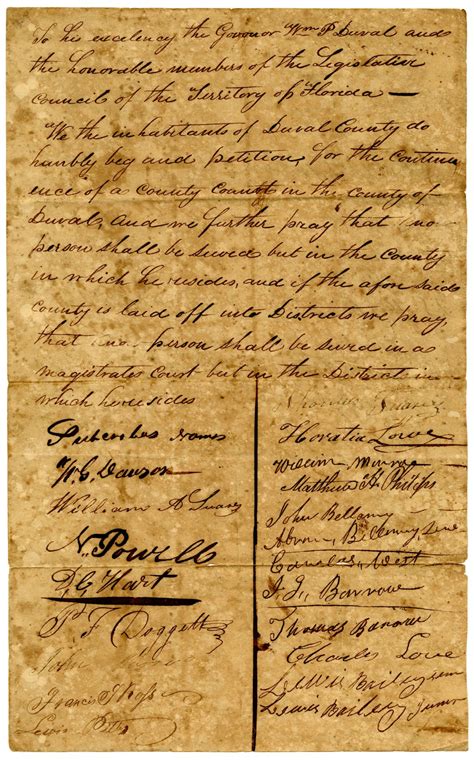 To his excelency the Govonor Wm P Duval and
the honorable members of the Legislative
Council of the Territory of Florida —
We the inhabitants of Duval County do
humbly beg and petition, for the continu
ence of a County Court in the county of
Duval, and we further pray that no
person shall be sewed but in the County
in which he resides, and if the afore said
county is laid off into Districts we pray,
that no person shall be sewed in a
magistrates Court but in the District in
which he resides
names
W. G. Dawson
William A
N. Powell
D. G. Hart
P. F. Doggett
John
Francis
Lewis
Thomas
Horatio Lowe
William
Matthew H. Philips
John Bellamy
Abram Bellamy
West
Barrow
Thomas Barrow
Charles Lowe
Lewis Bailey
Lewis Bailey Junr